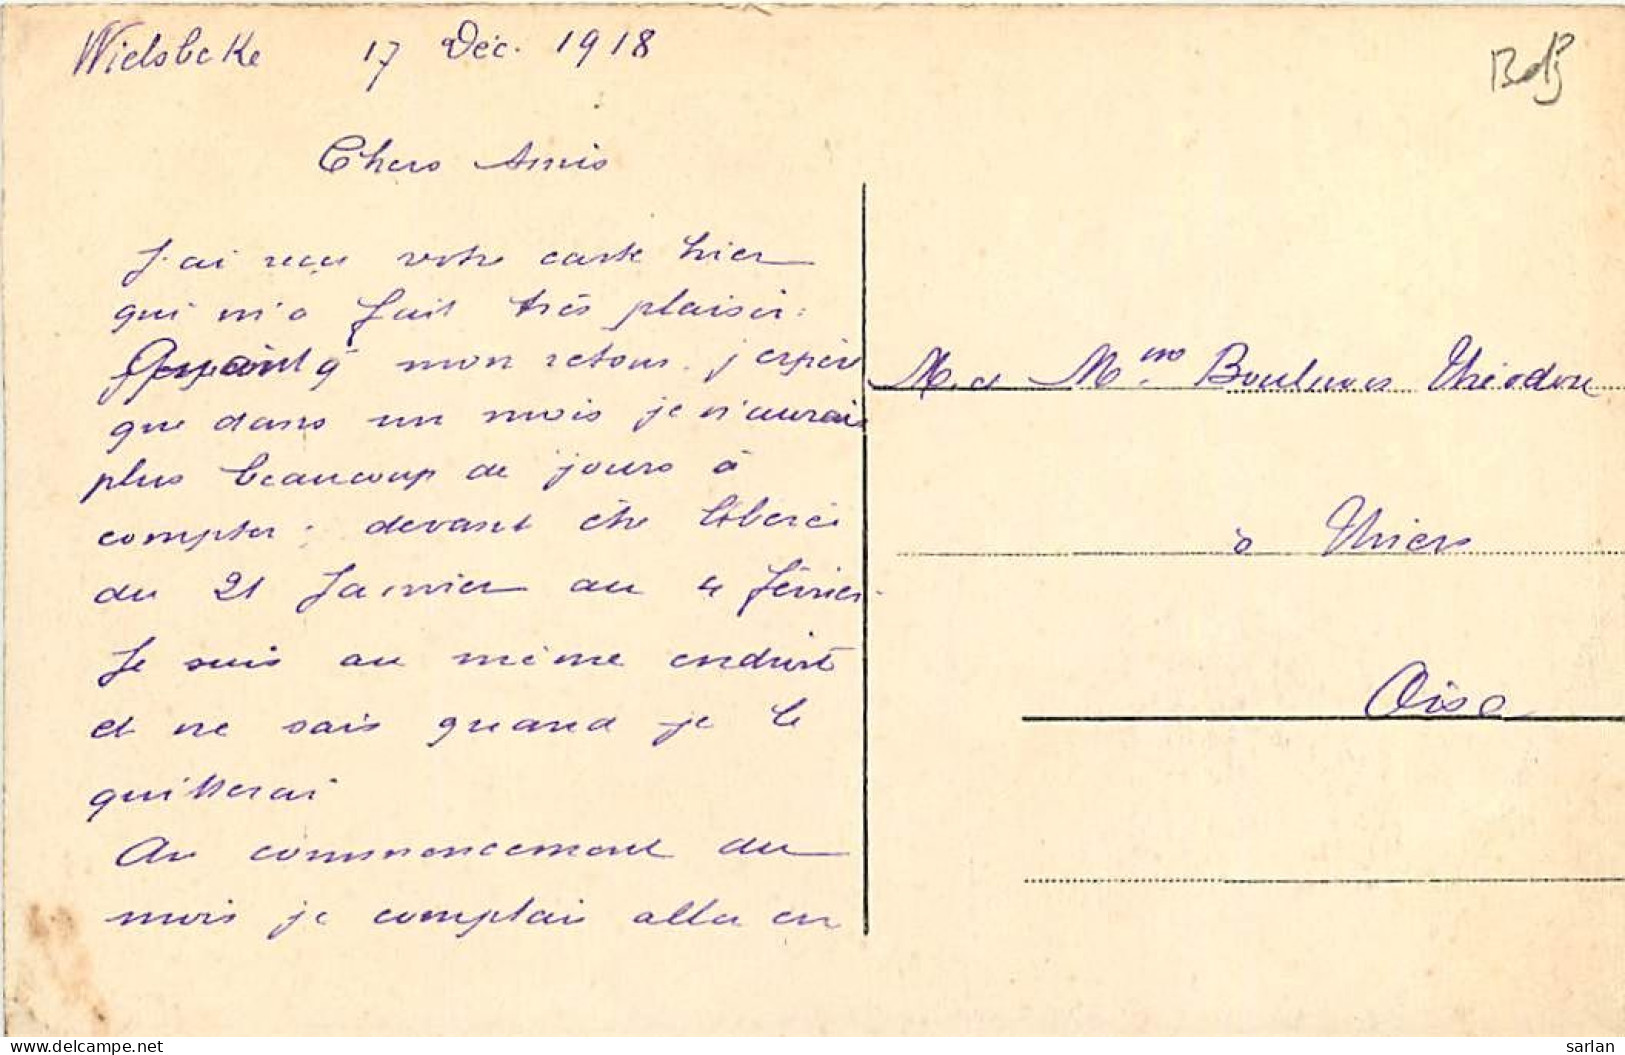 Wielsbeke 17 Déc. 1918
Chers Amis
J'ai reçu votre carte hier
qui m'a fait très plaisir.
Quant à mon retour. j'espère
que dans un mois je n'aurais
plus beaucoup de jours à
compter. devant être libéré
du 21 Janvier au 4 février.
Je suis au même endroit
et ne sais quand je le
quitterai
Au commencement du
mois je comptais aller en
M. et Mme Théodore
à Thiers
Oise
delcampe.net
sarlan